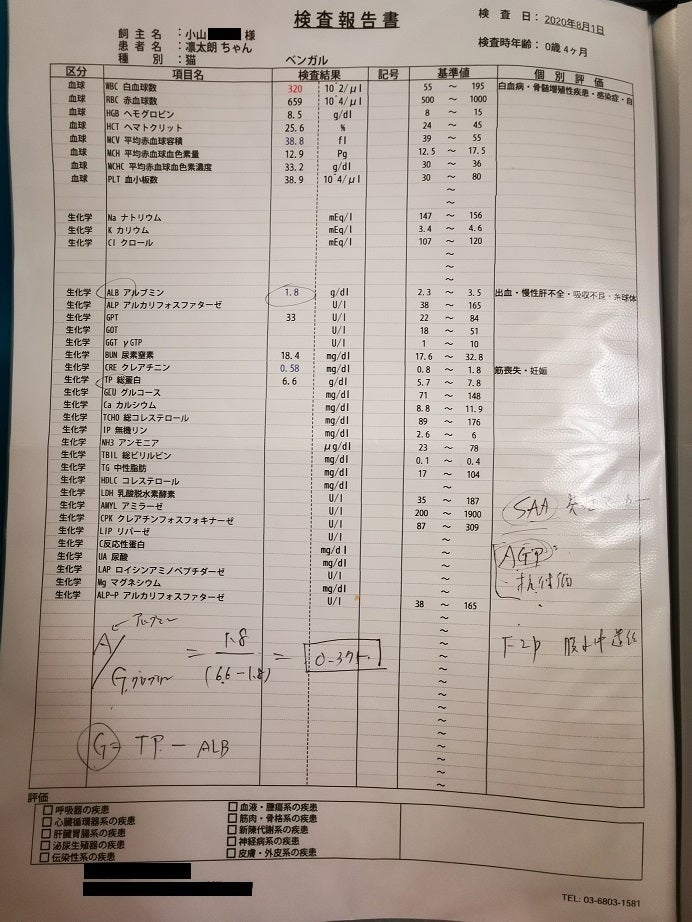 検査報告書
検 査 日： 2020年8月1日
飼 主 名 ：小山 様
患 者 名 ：凛太朗 ちゃん
検査時年齢： 0歳 4ヶ月
種 別 ：猫 ベンガル
区分 項目名 検査結果 記号 基準値 個 別 評 価
血球 WBC 白血球数 320 10^2/μl 55 ～ 195 白血病・骨髄増殖性疾患・感染症・自
血球 RBC 赤血球数 659 10^4/μl 500 ～ 1000
血球 HGB ヘモグロビン 8.5 g/dl 8 ～ 15
血球 HCT ヘマトクリット 25.6 % 24 ～ 45
血球 MCV 平均赤血球容積 38.8 fl 39 ～ 55
血球 MCH 平均赤血球血色素量 12.9 Pg 12.5 ～ 17.5
血球 MCHC 平均赤血球血色素濃度 33.2 g/dl 30 ～ 36
血球 PLT 血小板数 38.9 10^4/μl 30 ～ 80
～
～
生化学 Na ナトリウム mEq/l 147 ～ 156
生化学 K カリウム mEq/l 3.4 ～ 4.6
生化学 Cl クロール mEq/l 107 ～ 120
～
～
～
生化学 ALB アルブミン 1.8 g/dl 2.3 ～ 3.5 出血・慢性肝不全・吸収不良・糸球体
生化学 ALP アルカリフォスファターゼ U/l 38 ～ 165
生化学 GPT 33 U/l 22 ～ 84
生化学 GOT U/l 18 ～ 51
生化学 GGT γGTP U/l 1 ～ 10
生化学 BUN 尿素窒素 18.4 mg/dl 17.6 ～ 32.8
生化学 CRE クレアチニン 0.58 mg/dl 0.8 ～ 1.8 筋喪失・妊娠
生化学 TP 総蛋白 6.6 g/dl 5.7 ～ 7.8
生化学 GLU グルコース mg/dl 71 ～ 148
生化学 Ca カルシウム mg/dl 8.8 ～ 11.9
生化学 TCHO 総コレステロール mg/dl 89 ～ 176
生化学 IP 無機リン mg/dl 2.6 ～ 6
生化学 NH3 アンモニア μg/dl 23 ～ 78
生化学 TBIL 総ビリルビン mg/dl 0.1 ～ 0.4
生化学 TG 中性脂肪 mg/dl 17 ～ 104
生化学 HDLC コレステロール mg/dl ～
生化学 LDH 乳酸脱水素酵素 U/l 35 ～ 187
生化学 AMYL アミラーゼ U/l 200 ～ 1900
生化学 CPK クレアチンフォスフォキナーゼ U/l 87 ～ 309
生化学 LIP リパーゼ U/l ～
生化学 C反応性蛋白 mg/dl ～
生化学 UA 尿酸 mg/dl ～
生化学 LAP ロイシンアミノペプチダーゼ U/l ～
生化学 Mg マグネシウム mg/dl ～
生化学 ALP-P アルカリフォスファターゼ U/l 38 ～ 165
SAA
AGP
・抗体価
A アルブミン
G グロブリン
= 1.8 / (6.6 - 1.8) = 0.375
G = TP - ALB
評価
□ 呼吸器の疾患 □ 血液・腫瘍系の疾患
□ 心臓循環器系の疾患 □ 筋肉・骨格系の疾患
□ 肝臓胃腸系の疾患 □ 新陳代謝系の疾患
□ 泌尿生殖器の疾患 □ 神経病系の疾患
□ 伝染性系の疾患 □ 皮膚・外皮系の疾患
TEL: 03-6803-1581